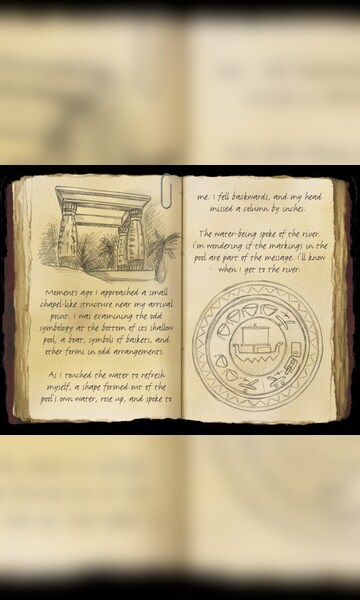 Moments ago I approached a small
chapel-like structure near my arrival
point. I was examining the odd
symbology at the bottom of its shallow
pool, a boat, symbols of baskets, and
other forms in odd arrangements.
As I touched the water to refresh
myself, a shape formed out of the
pool's own water, rose up, and spoke to
me. I fell backwards, and my head
missed a column by inches.
The water-being spoke of the river.
I'm wondering if the markings in the
pool are part of the message. I'll know
when I get to the river.